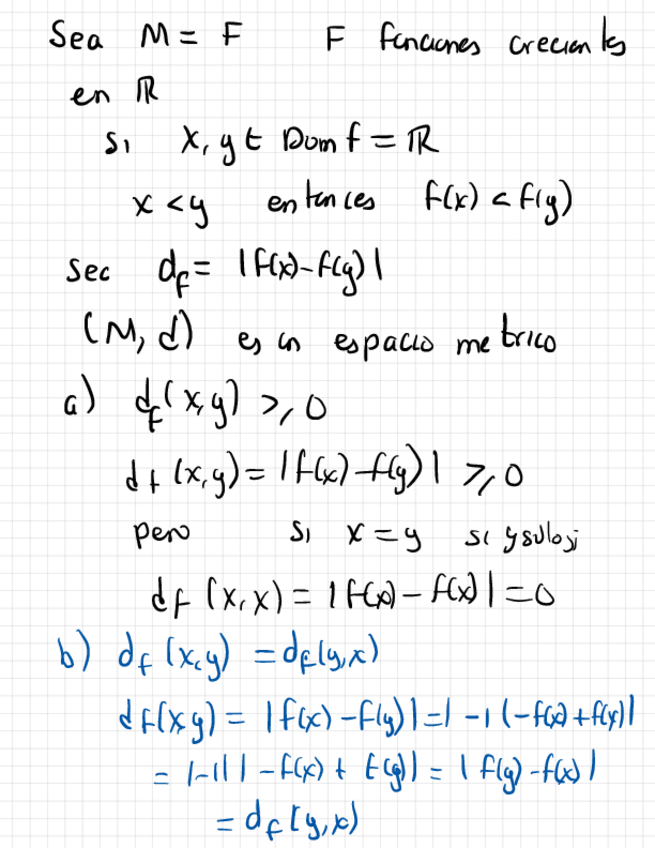 Sea M = F F funciones crecientes
en ℝ
Si x, y ∈ Dom f = ℝ
x < y entonces f(x) < f(y)
Sea d_f = |f(x)-f(y)|
(M, d) es un espacio metrico
a) d_f(x,y) ≥ 0
d_f (x,y) = |f(x)-f(y)| ≥ 0
pero si x = y si y solo si
d_f (x,x) = |f(x) - f(x)| = 0
b) d_f (x,y) = d_f(y,x)
d_f(x,y) = |f(x) - f(y)| = |-1(-f(x)+f(y)|
= |-1||-f(x) + f(y)| = |f(y)-f(x)|
= d_f(y,x)